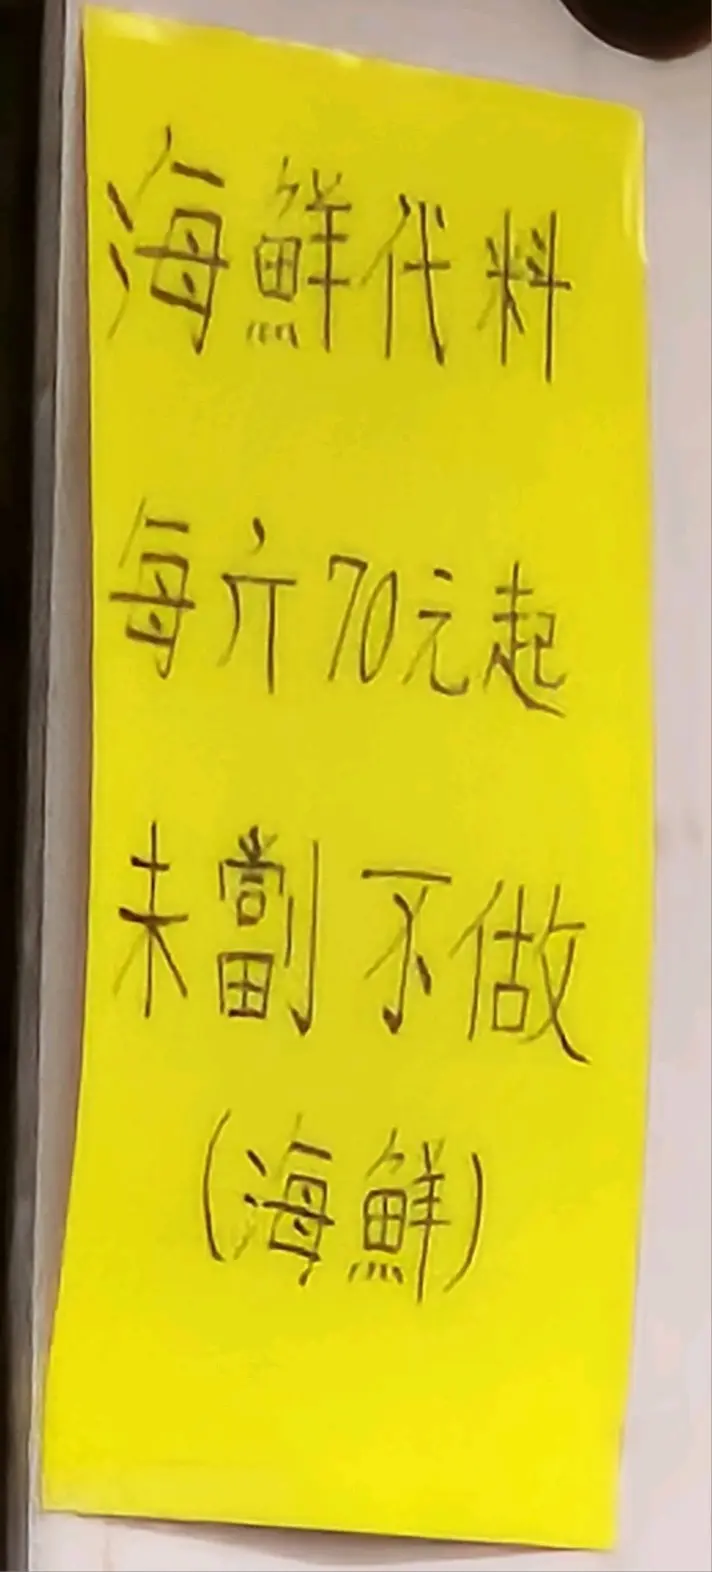 海鮮代料
每斤70元起
未劏不做
(海鮮)